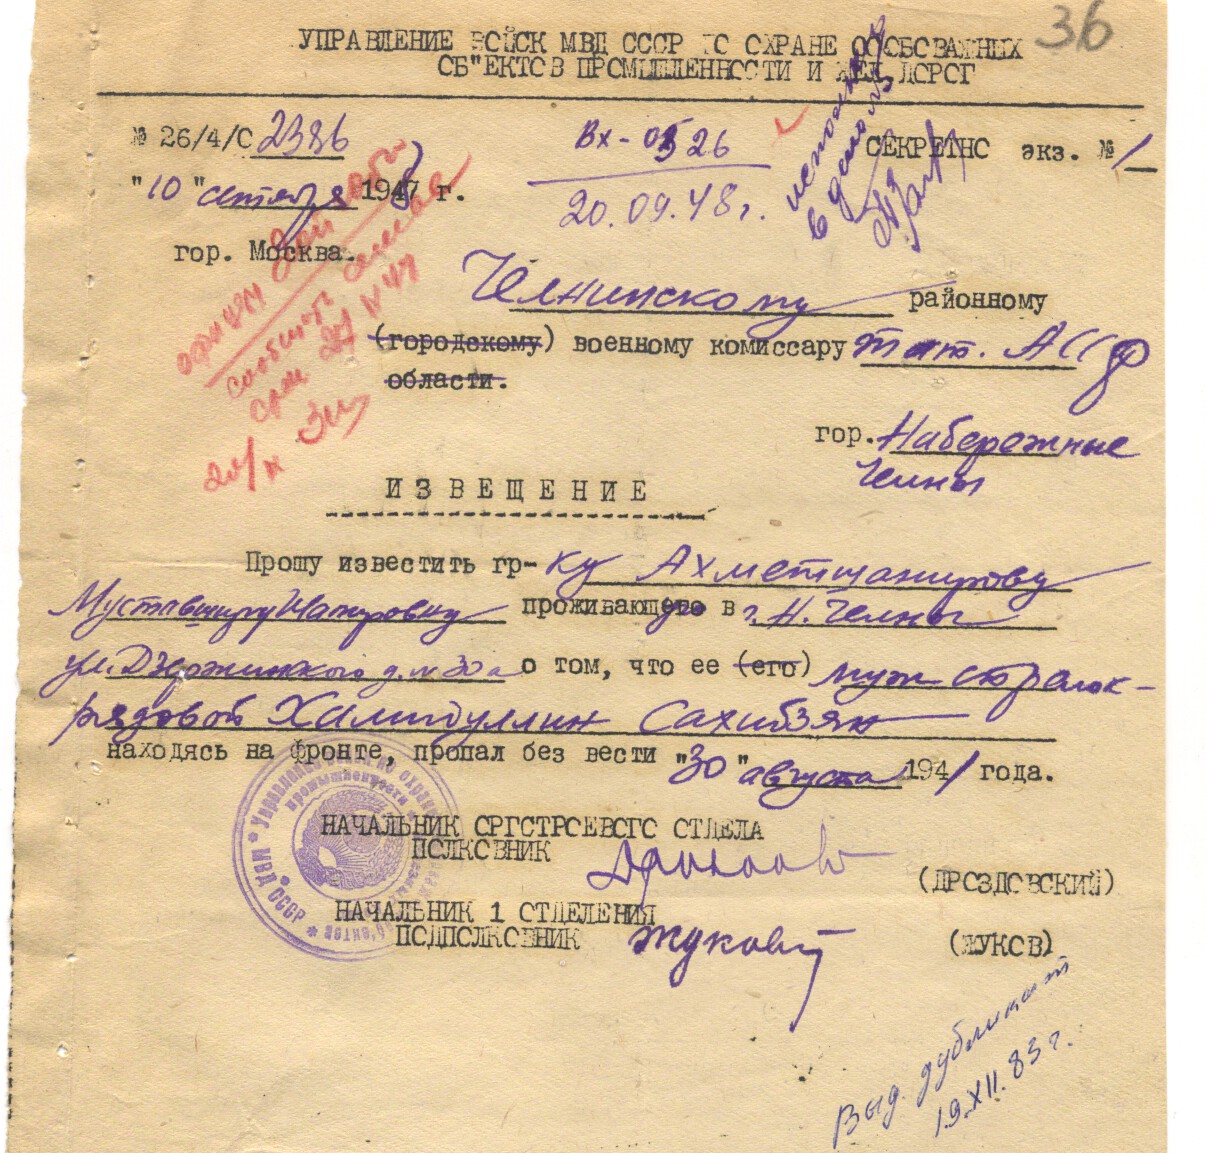 36
УПРАВЛЕНИЕ ВОЙСК МВД СССР ПО ОХРАНЕ ОСОБОВАЖНЫХ
ОБ"ЕКТОВ ПРОМЫШЛЕННОСТИ И ЖЕЛ ДОРОГ
№ 26/4/С 2386
Вх - 0526
20.09.48 г.
исполнено
в дело №3
СЕКРЕТНО экз. № 1
"10" сентября 1948 г.
гор. Москва.
сообщить
Челнинскому районному
(городскому) военному комиссару Тат. АССР
области.
гор. Набережные
Челны
ИЗВЕЩЕНИЕ
Прошу известить гр-ку Ахметшакирову
проживающую в г. Н. Челны
ул. Дзержинского д. № 30а о том, что ее (его) муж стрелок-
рядовой Халидуллин Сахибзян
находясь на фронте, пропал без вести "30" августа 1941 года.
НАЧАЛЬНИК ОРГСТРОЕВОГО ОТДЕЛА
ПОЛКОВНИК
(ДРОЗДОВСКИЙ)
НАЧАЛЬНИК 1 ОТДЕЛЕНИЯ
ПОДПОЛКОВНИК Жуков
(ЖУКОВ)
Управление войск по охране
промышленности
МВД СССР
Выд. дубликат
19.XII.83 г.